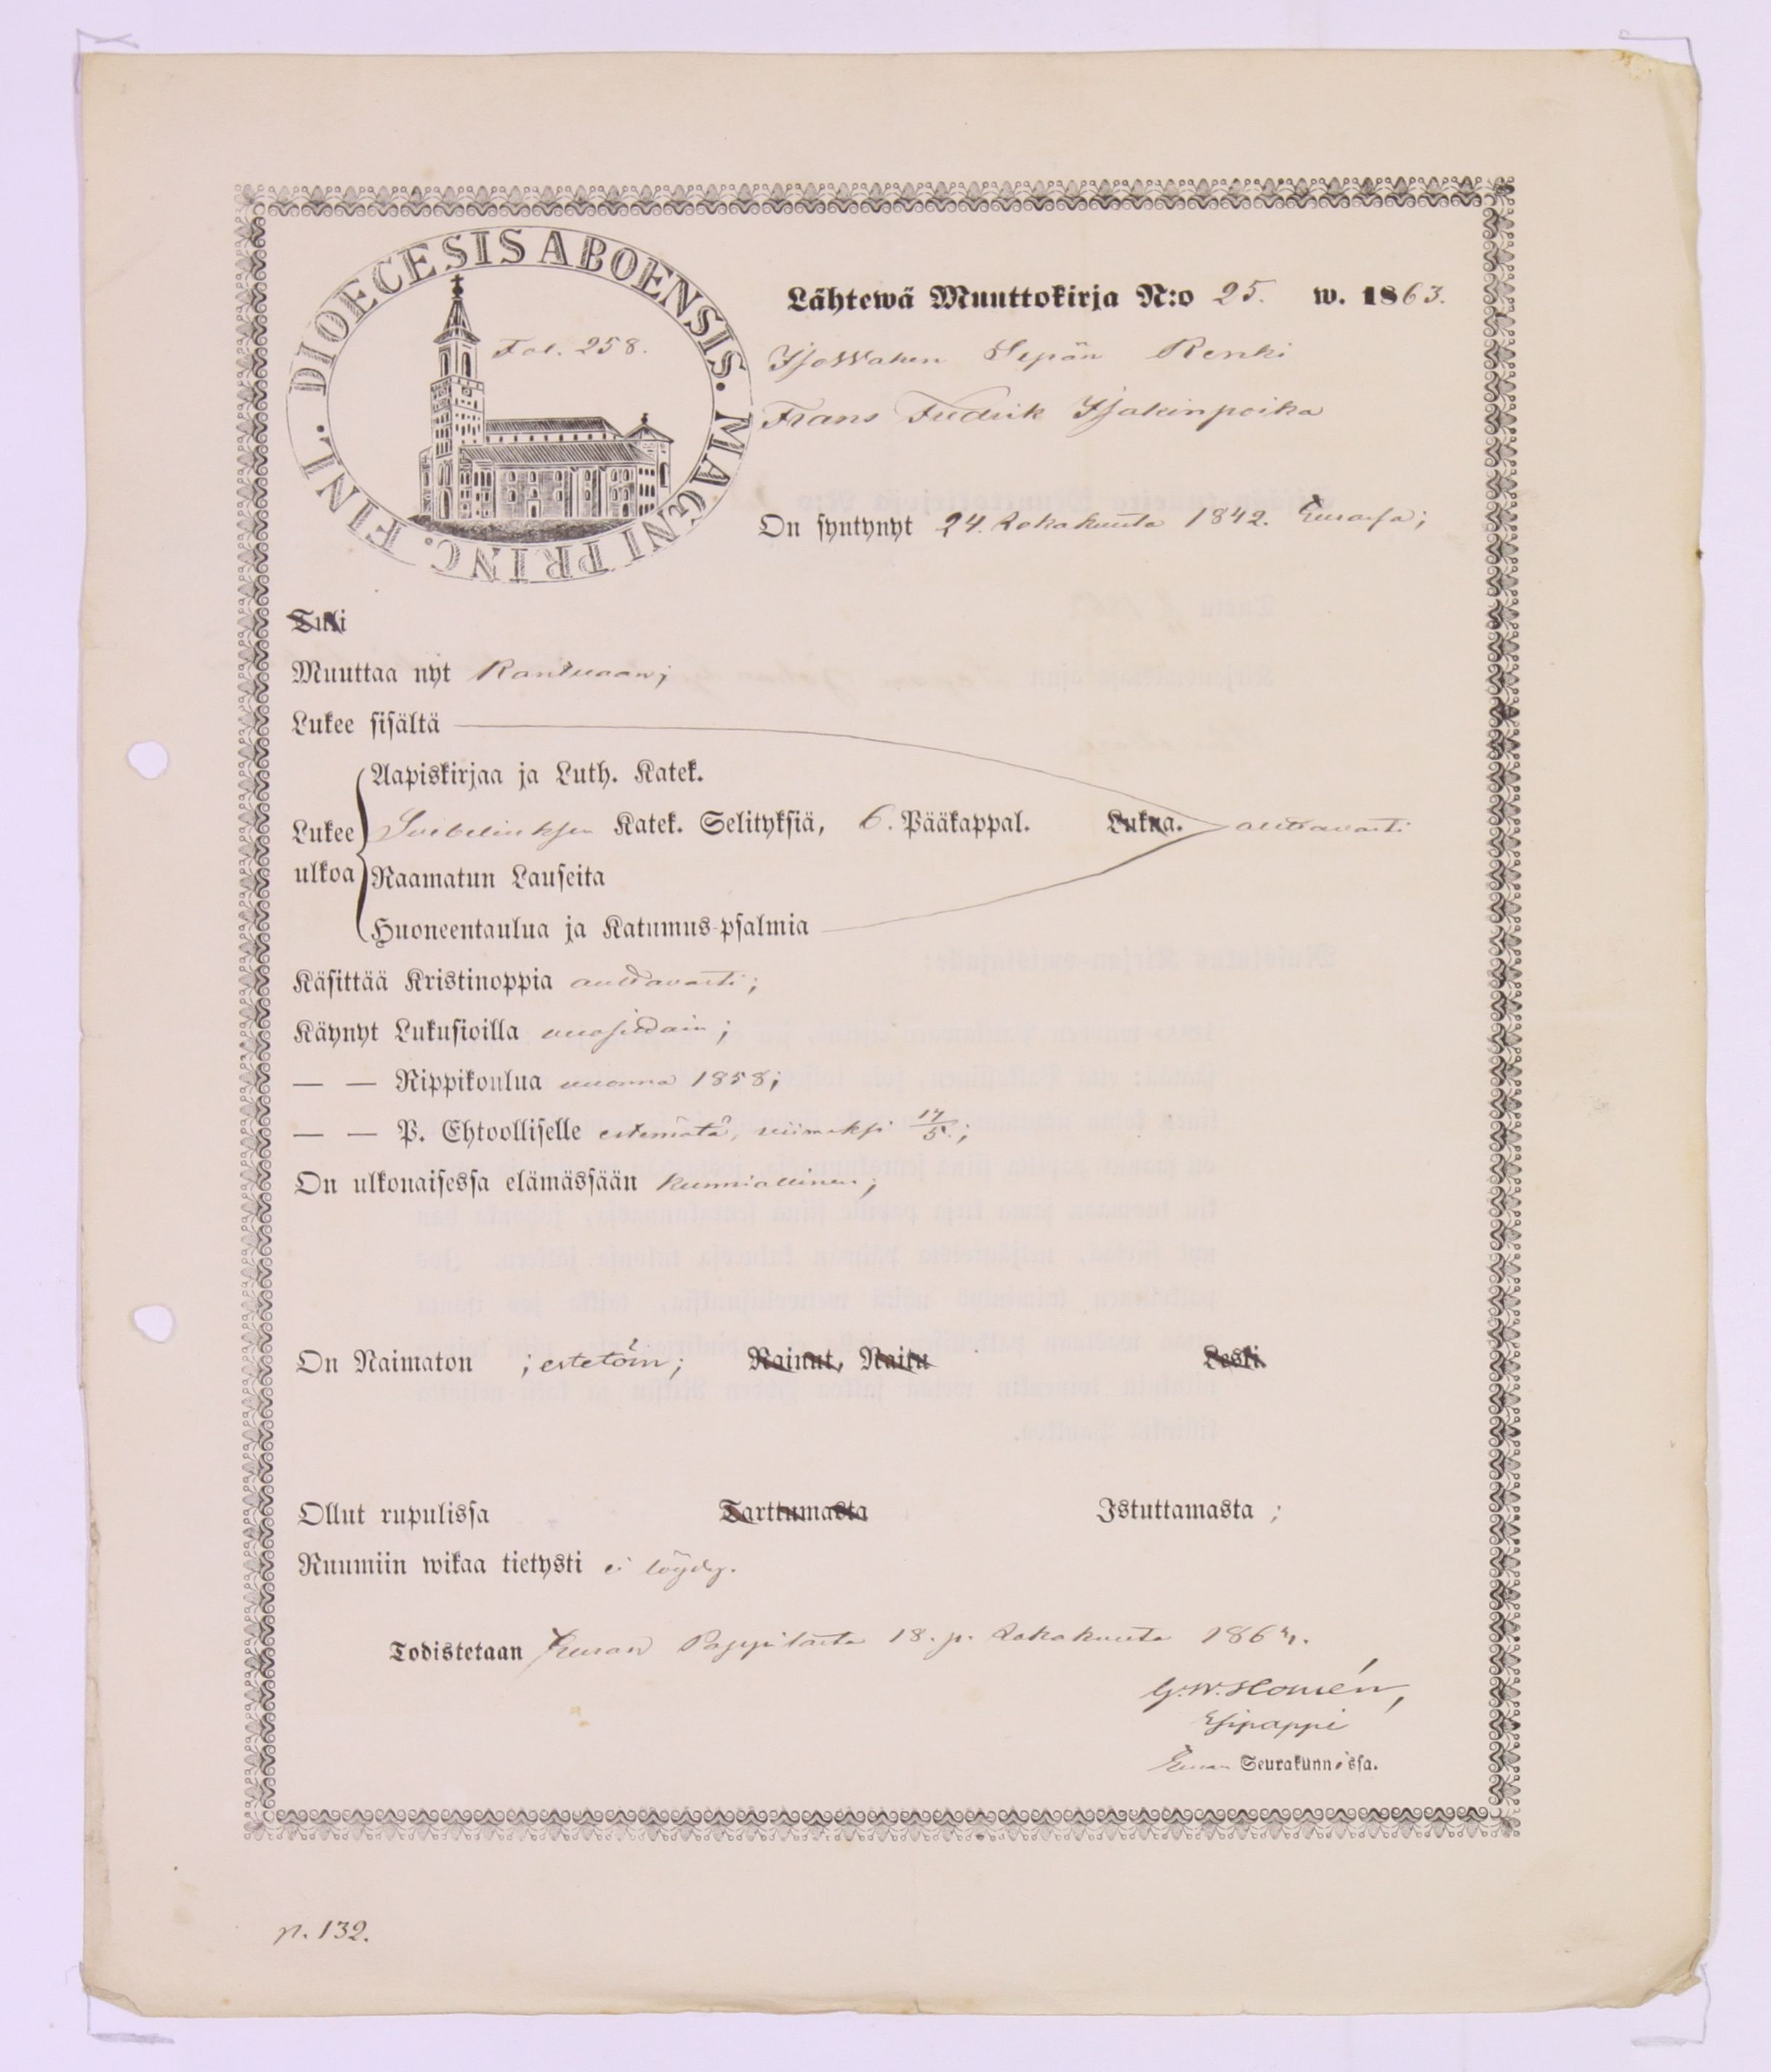 DIOECESIS ABOENSIS. MAGNI PRINC. FINL.
Fol. 258.
Lähtewä Muuttokirja N:o 25. w. 1863.
Sepän Renki
Frans Fredrik Isakinpoika
On syntynyt 24. Lokakuuta 1842. Eurassa;
Tuli
Muuttaa nyt
Lukee sisältä
Aapiskirjaa ja Luth. Katek.
Lukee ulkoa Svebeliuksen Katek. Selityksiä, 6. Pääkappal. Lukua. auttavasti
Raamatun Lauseita
Huoneentaulua ja Katumus-psalmia
Käsittää Kristinoppia auttavasti;
Käynyt Lukusioilla vuosittain;
— — Rippikoulua vuonna 1858;
— — P. Ehtoolliselle estemätä, viimeksi 17/5.;
On ulkonaisessa elämässään kunniallinen;
On Naimaton ; estetöin; Nainut, Naitu Leski
Ollut rupulissa Tarttumasta Istuttamasta ;
Ruumiin wikaa tietysti ei löydy.
Todistetaan Euran Pappilasta 18. p. Lokakuuta
G. W. Homén,
Esipappi
Euran Seurakunnassa.
p. 132.